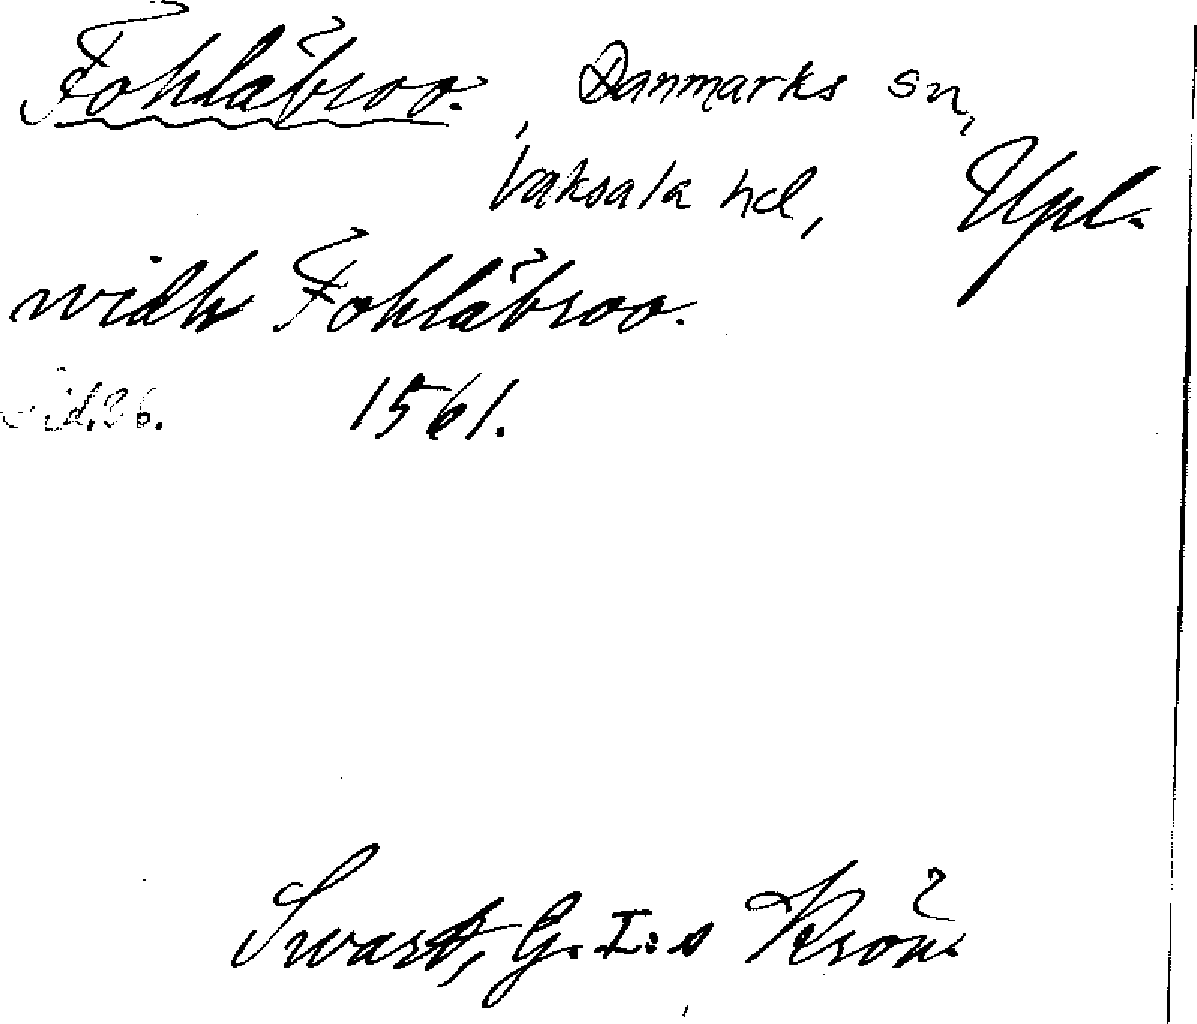 Fohlabroo. , Danmarks sn,
Vaksala hd, Upl.
widh Fohlabroo.
sid. 36. 1561.
Swart, G. I:s Krön.